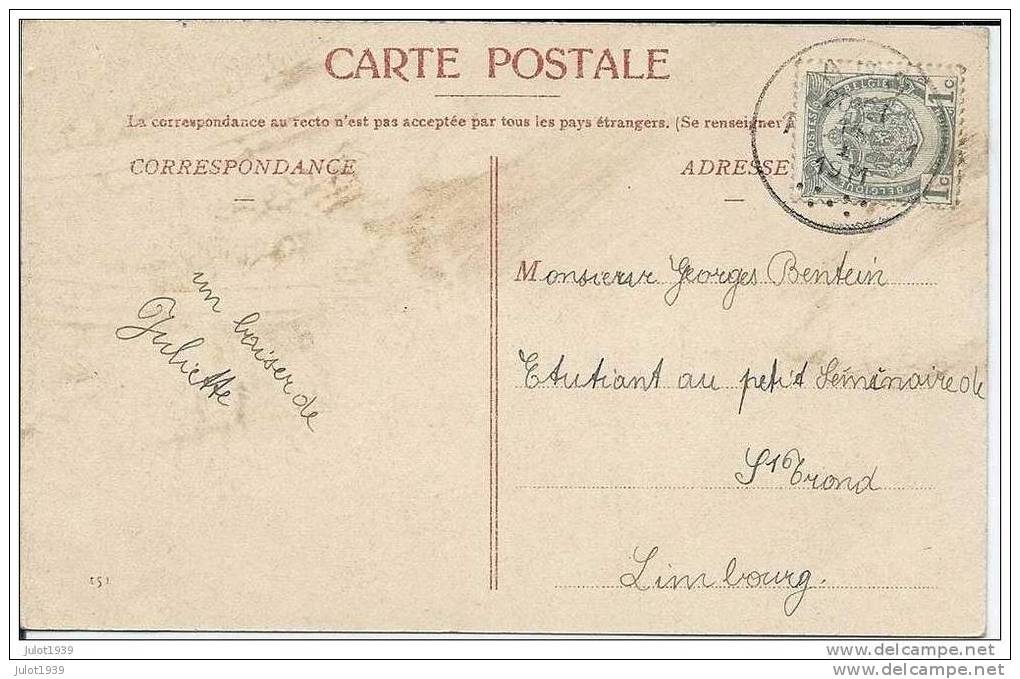 CARTE POSTALE
La correspondance au recto n'est pas acceptée par tous les pays étrangers. (Se renseigner
CORRESPONDANCE
ADRESSE
BELGIE
POSTES
1c
1c
BELGIQUE
1911
Monsieur Georges Bentein
Etutiant au petit Séminaire de
St Trond
Limbourg.
un baiser de
Juliette
julot1939
www.delcampe.net
julot1939
www.delcampe.net